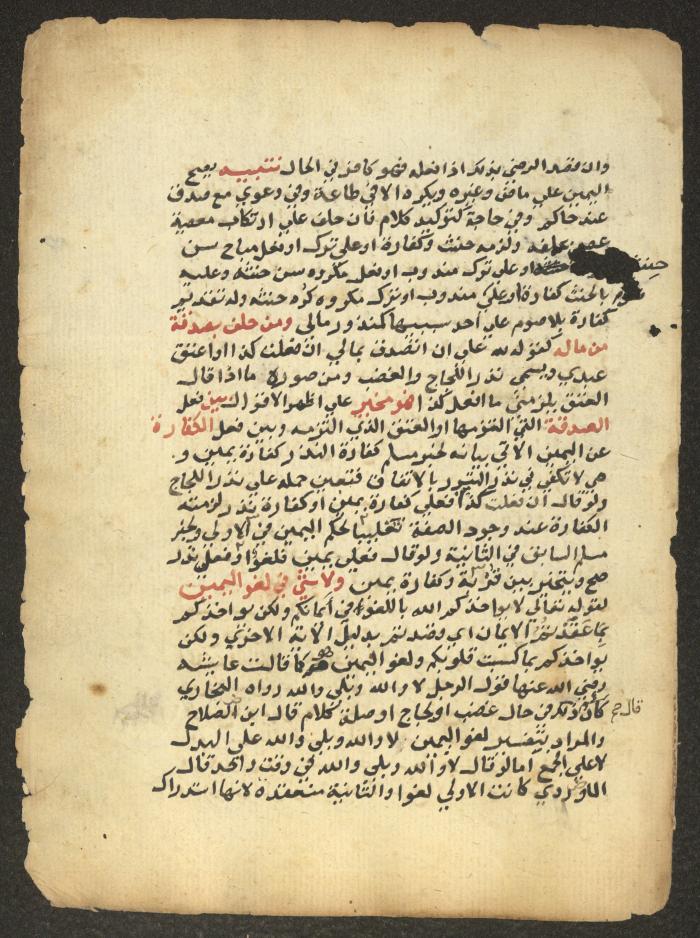 وان قصد الرضى بذلك اذا فعله فهو كافر في الحال تنبيه يصح
اليمين على ماض وغيره ويكره الا في طاعة وفي دعوى مع صدق
عند حاكم وفي حاجة لتوكيد كلام فان حلف على ارتكاب معصية
عصى بحلفه ولزمه حنث وكفارة او على ترك او فعل مباح سن
حنثه او على ترك مندوب او فعل مكروه سن حنثه وعليه
بالحنث كفارة او على مندوب او ترك مكروه كره حنثه وله تقديم
كفارة بلا صوم على احد سببيها كنذور مالي ومن حلف بصدقة
من ماله كقوله لله علي ان اتصدق بمالي ان فعلت كذا او اعتق
عبدي ويسمى نذر اللجاج والغضب ومن صوره ما اذا قال
العتق يلزمني ما افعل كذا فهو مخير على اظهر الاقوال بين فعل
الصدقة التي التزمها او العتق الذي التزمه وبين فعل الكفارة
عن اليمين الاتي بيانه لخبر مسلم كفارة النذر كفارة يمين و
هي لا تكفي في نذر التبرر بالاتفاق فتعين حمله على نذر اللجاج
ولو قال ان فعلت كذا فعلي كفارة يمين او كفارة نذر لزمته
الكفارة عند وجود الصفة تغليبا لحكم اليمين في الاولى ولخبر
مسلم السابق في الثانية ولو قال فعلي يمين فلغو او فعلي نذر
صح ويتخير بين قربة وكفارة يمين ولا شي في لغو اليمين
لقوله تعالى لا يواخذكم الله باللغو في ايمانكم ولكن يواخذكم
بما عقدتم الايمان اي قصدتم بدليل الاية الاخرى ولكن
يواخذكم بما كسبت قلوبكم ولغو اليمين هو كما قالت عايشه
رضي الله عنها قول الرجل لا والله وبلى والله رواه البخاري
كان ذلك في حال غضب او لجاج او صلة كلام قال ابن الصلاح
قال ج
والمراد بتفسير لغو اليمين لا والله وبلى والله على البدل
لا على الجمع اما لو قال لا والله وبلى والله في وقت واحد قال
الماوردي كانت الاولى لغوا والثانية منعقدة لانها استدراك